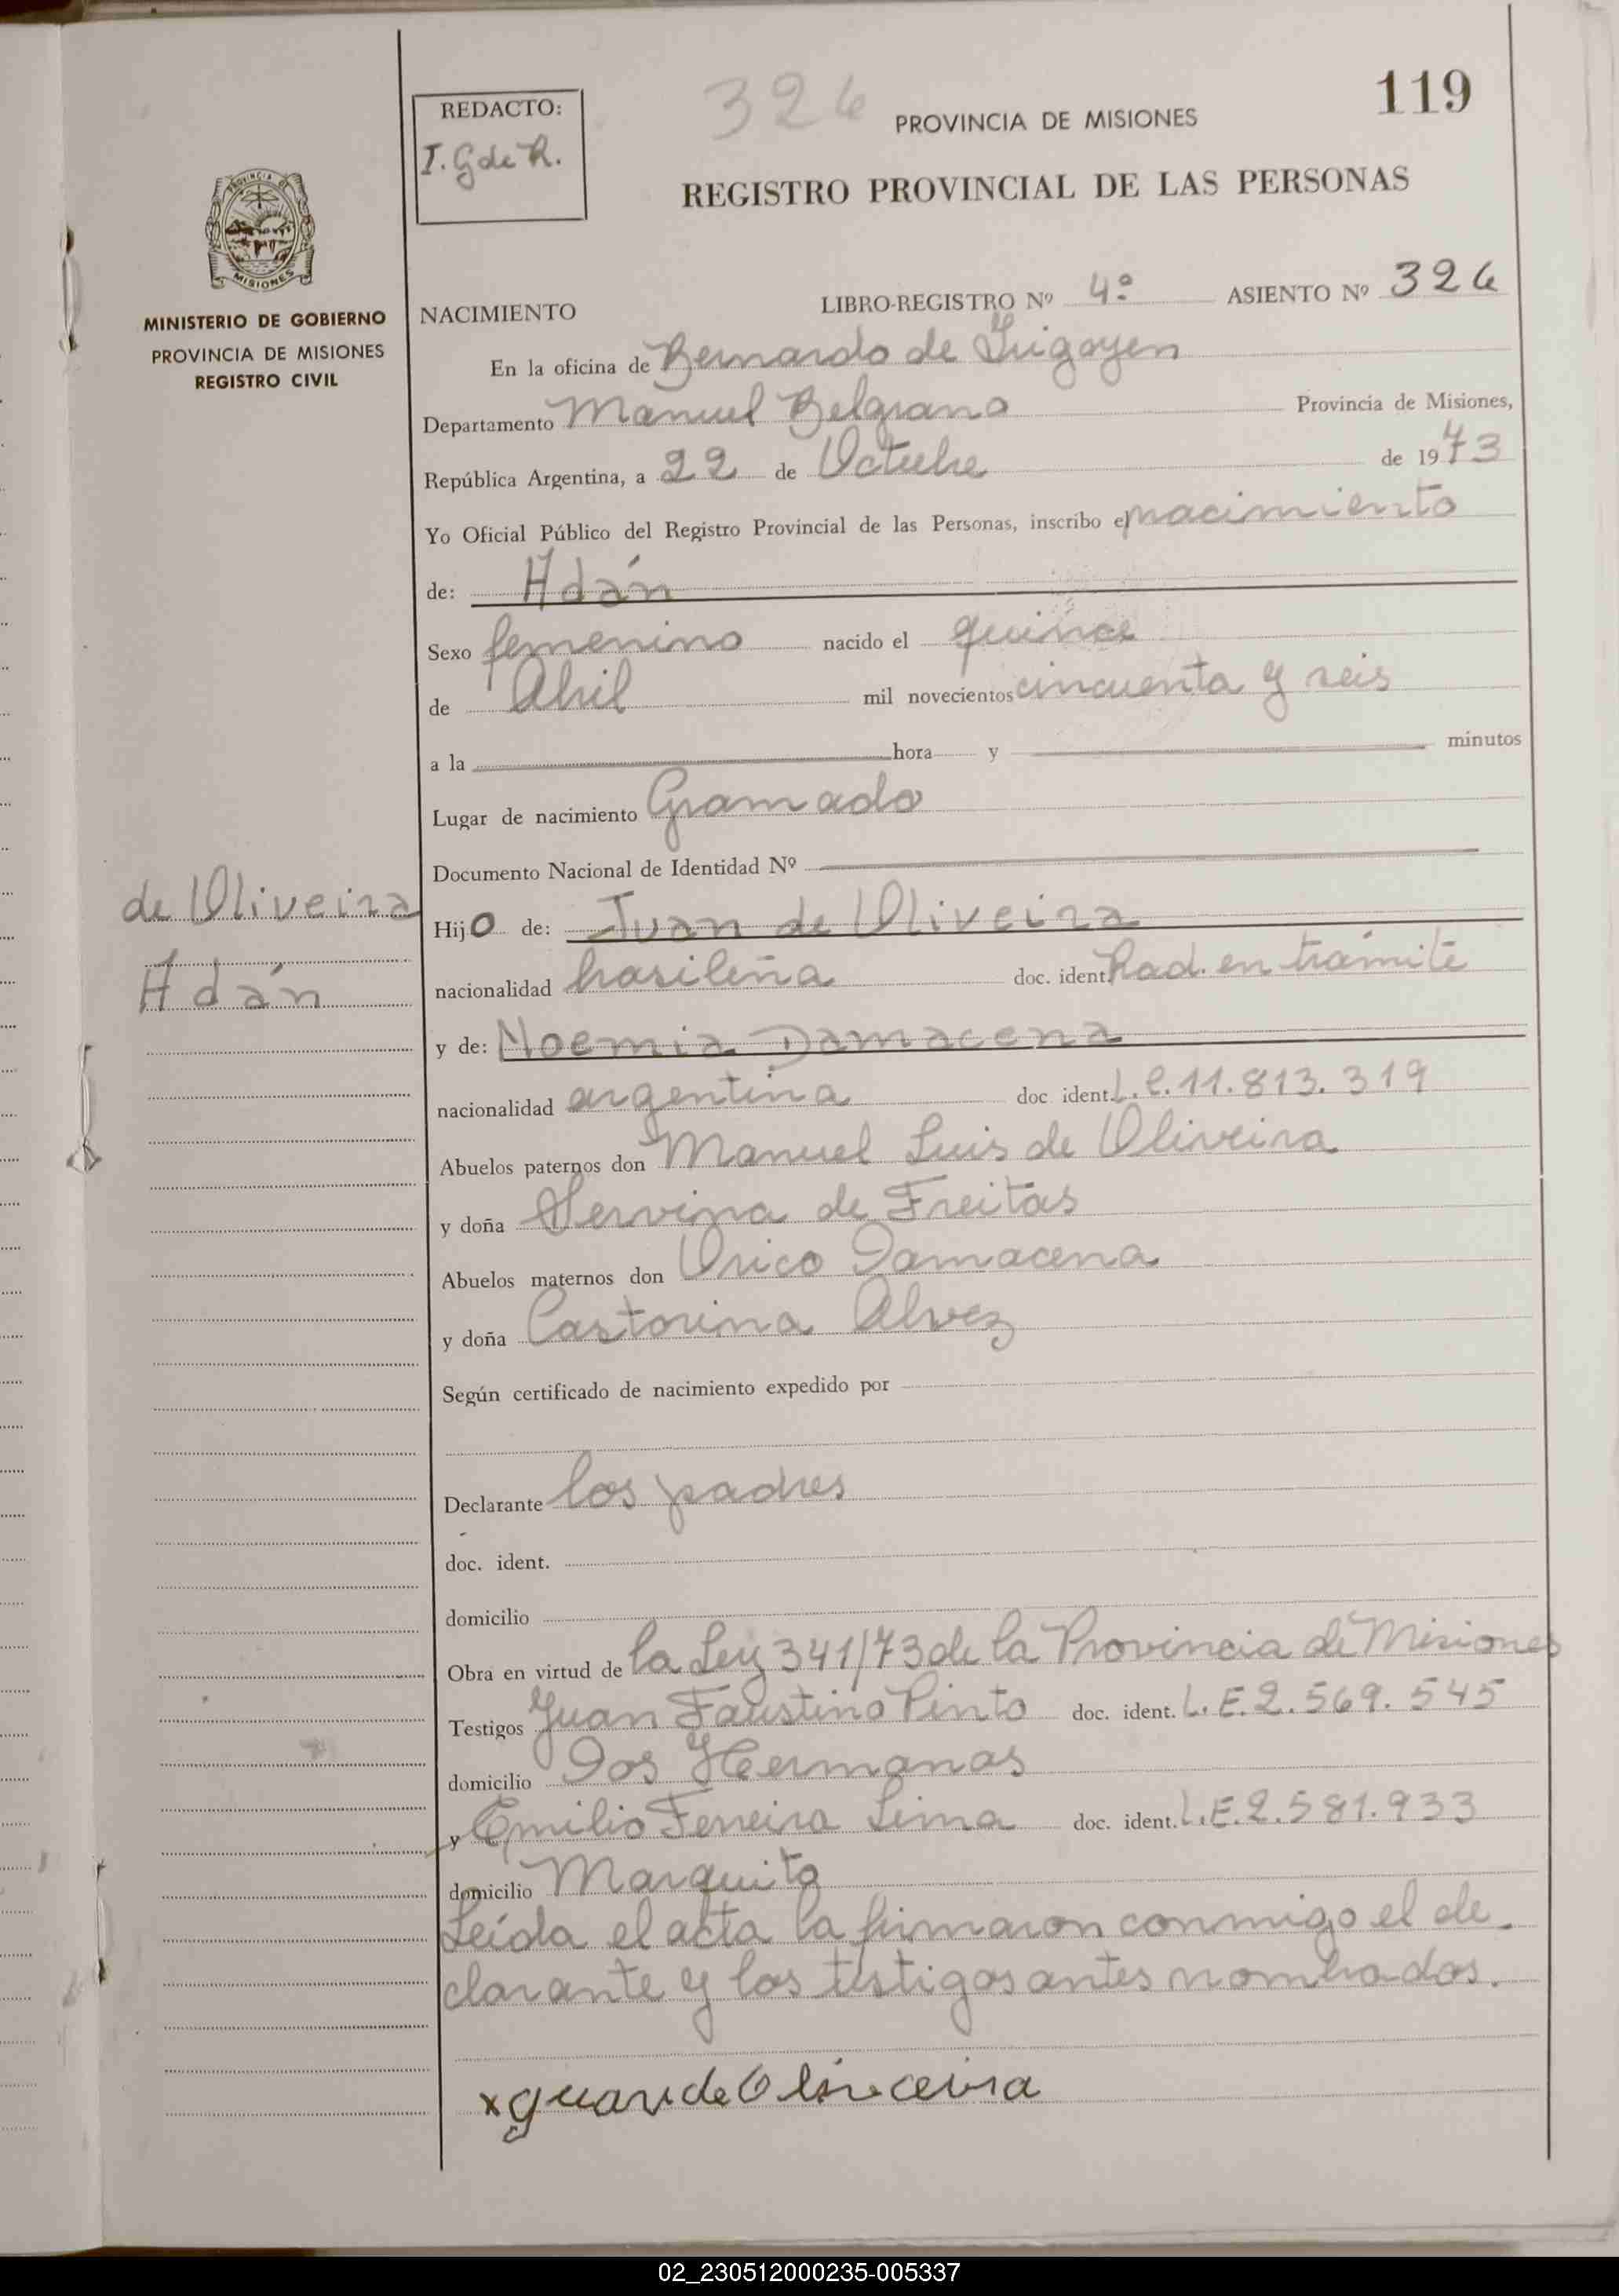 119
REDACTO:
I. G de R.
326
PROVINCIA DE MISIONES
REGISTRO PROVINCIAL DE LAS PERSONAS
PROVINCIA DE
MISIONES
MINISTERIO DE GOBIERNO
PROVINCIA DE MISIONES
REGISTRO CIVIL
NACIMIENTO LIBRO-REGISTRO Nº 4º ASIENTO Nº 326
En la oficina de Bernardo de Irigoyen
Departamento Manuel Belgrano Provincia de Misiones,
República Argentina, a 22 de Octubre de 1973
Yo Oficial Público del Registro Provincial de las Personas, inscribo el nacimiento
de: Adán
Sexo femenino nacido el quince
de Abril mil novecientos cincuenta y seis
a la hora y minutos
Lugar de nacimiento Gramado
Documento Nacional de Identidad Nº
de Oliveira
Adán
Hijo de: Juan de Oliveira
nacionalidad brasileña doc. ident. Rad. en trámite
y de: Noemia Damacena
nacionalidad argentina doc. ident. L.C. 11.813.319
Abuelos paternos don Manuel Luis de Oliveira
y doña Servina de Freitas
Abuelos maternos don Orico Damacena
y doña Castorina Alvez
Según certificado de nacimiento expedido por
Declarante los padres
doc. ident.
domicilio
Obra en virtud de la Ley 341/73 de la Provincia de Misiones
Testigos Juan Faustino Pinto doc. ident. L.E. 2.569.545
domicilio Dos Hermanas
y Emilio Ferreira Lima doc. ident. L.E. 2.581.933
domicilio Marquito
Leída el acta la firmaron conmigo el de-
clarante y los testigos antes nombrados.
x Juan de Oliveira
02_230512000235-005337